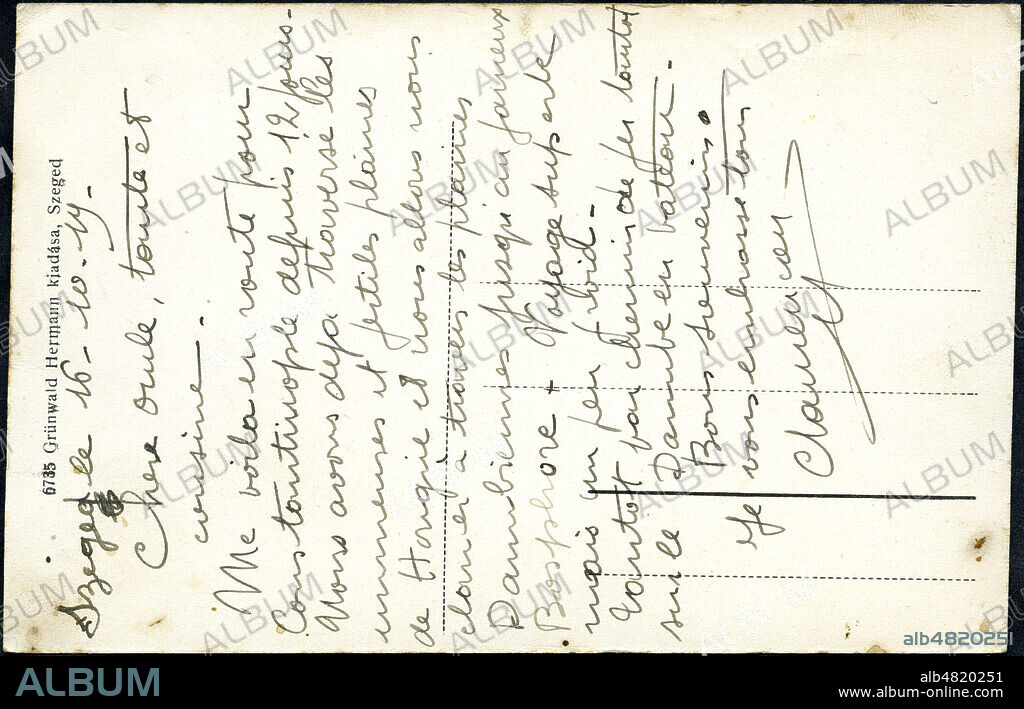 6735 Grünwald Hermann kiadása, Szeged
Szeged le 16-10-19-
Chere oncle, tante et
cousine -
Me voila en route pour
Constantinople depuis 12 jours-
Nous avons deja traversé les
immenses et fertiles plaines
de Hongrie et nous allons nous
à travers les plaines
Danubiennes jusqu'au fameux
Bosphore - Voyage superbe
mais un peu froid -
tantot par chemin de fer tantot
sur le Danube en bateau -
Bons souvenirs.
Je vous embrasse tous
ALBUM
alb4820251
alb4820251
www.album-online.com